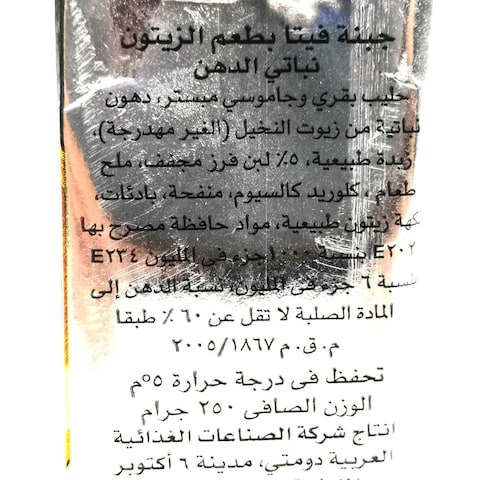 جبنة فيتا بطعم الزيتون
نباتي الدهن
حليب بقري وجاموسي مبستر، دهون
نباتية من زيوت النخيل (الغير مهدرجة)،
زبدة طبيعية، ٥٪ لبن فرز مجفف، ملح
طعام ، كلوريد كالسيوم، منفحة، بادئات،
نكهة زيتون طبيعية، مواد حافظة مصرح بها
E٢٠٢ بنسبة ١٠٠٠ جزء في المليون E٢٣٤
بنسبة ٦ جزء في المليون، نسبة الدهن إلى
المادة الصلبة لا تقل عن ٦٠ ٪ طبقا
م. ق. م ٢٠٠٥/١٨٦٧
تحفظ في درجة حرارة ٥°م
الوزن الصافى ٢٥٠ جرام
انتاج شركة الصناعات الغذائية
العربية دومتي، مدينة ٦ أكتوبر